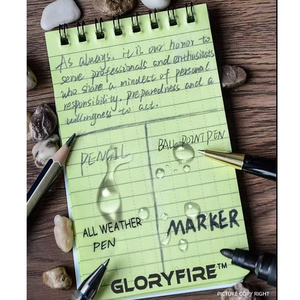 As always, it is our honor to
serve professionals and enthusiasts
who share a mindset of personal
responsibility, preparedness and a
willingness to act.
PENCIL
BALL POINT PEN
ALL WEATHER
PEN
MARKER
GLORYFIRE™
PICTURE COPY RIGHT